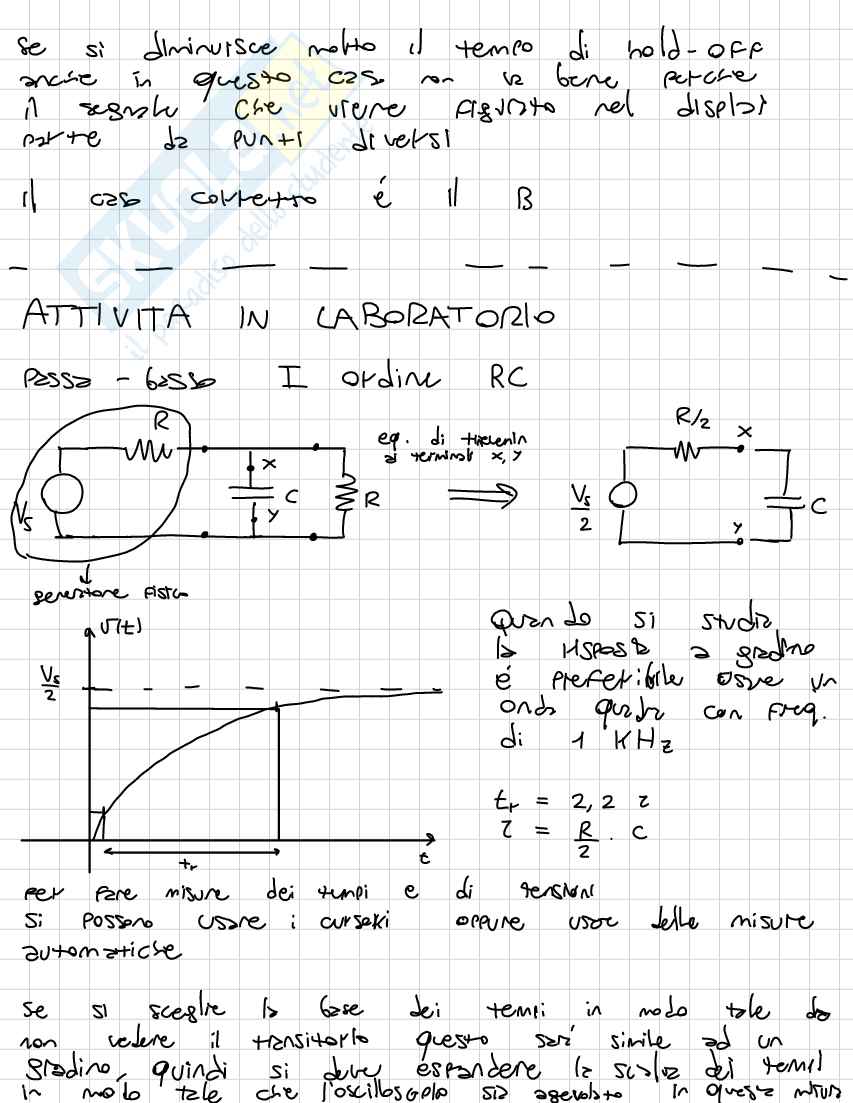 se si diminuisce molto il tempo di hold-off
anche in questo caso non va bene perche
il segnale che viene figurato nel displai
parte da punti diversi
il caso corretto é il B
ATTIVITA IN LABORATORIO
passa-basso I ordine RC
R
x
C
y
R
Vs
generatore fisico
eq. di thevenin
ai terminali x, y
R/2
x
Vs/2
y
C
v(t)
Vs/2
tr
t
Quando si studia
la risposta a gradino
é preferibile usare un
onda quadra con freq.
di 1 KHz
tr = 2,2 τ
τ = R/2 . C
per fare misure dei tempi e di tensioni
si possono usare i cursori oppure usare delle misure
automatiche
se si sceglie la base dei tempi in modo tale da
non vedere il transitorio questo sará simile ad un
gradino, quindi si deve espandere la scala dei tempi
in modo tale che l'oscilloscopio sia agevolato in questa misura
SKUOLA.net
il paradiso dello studente